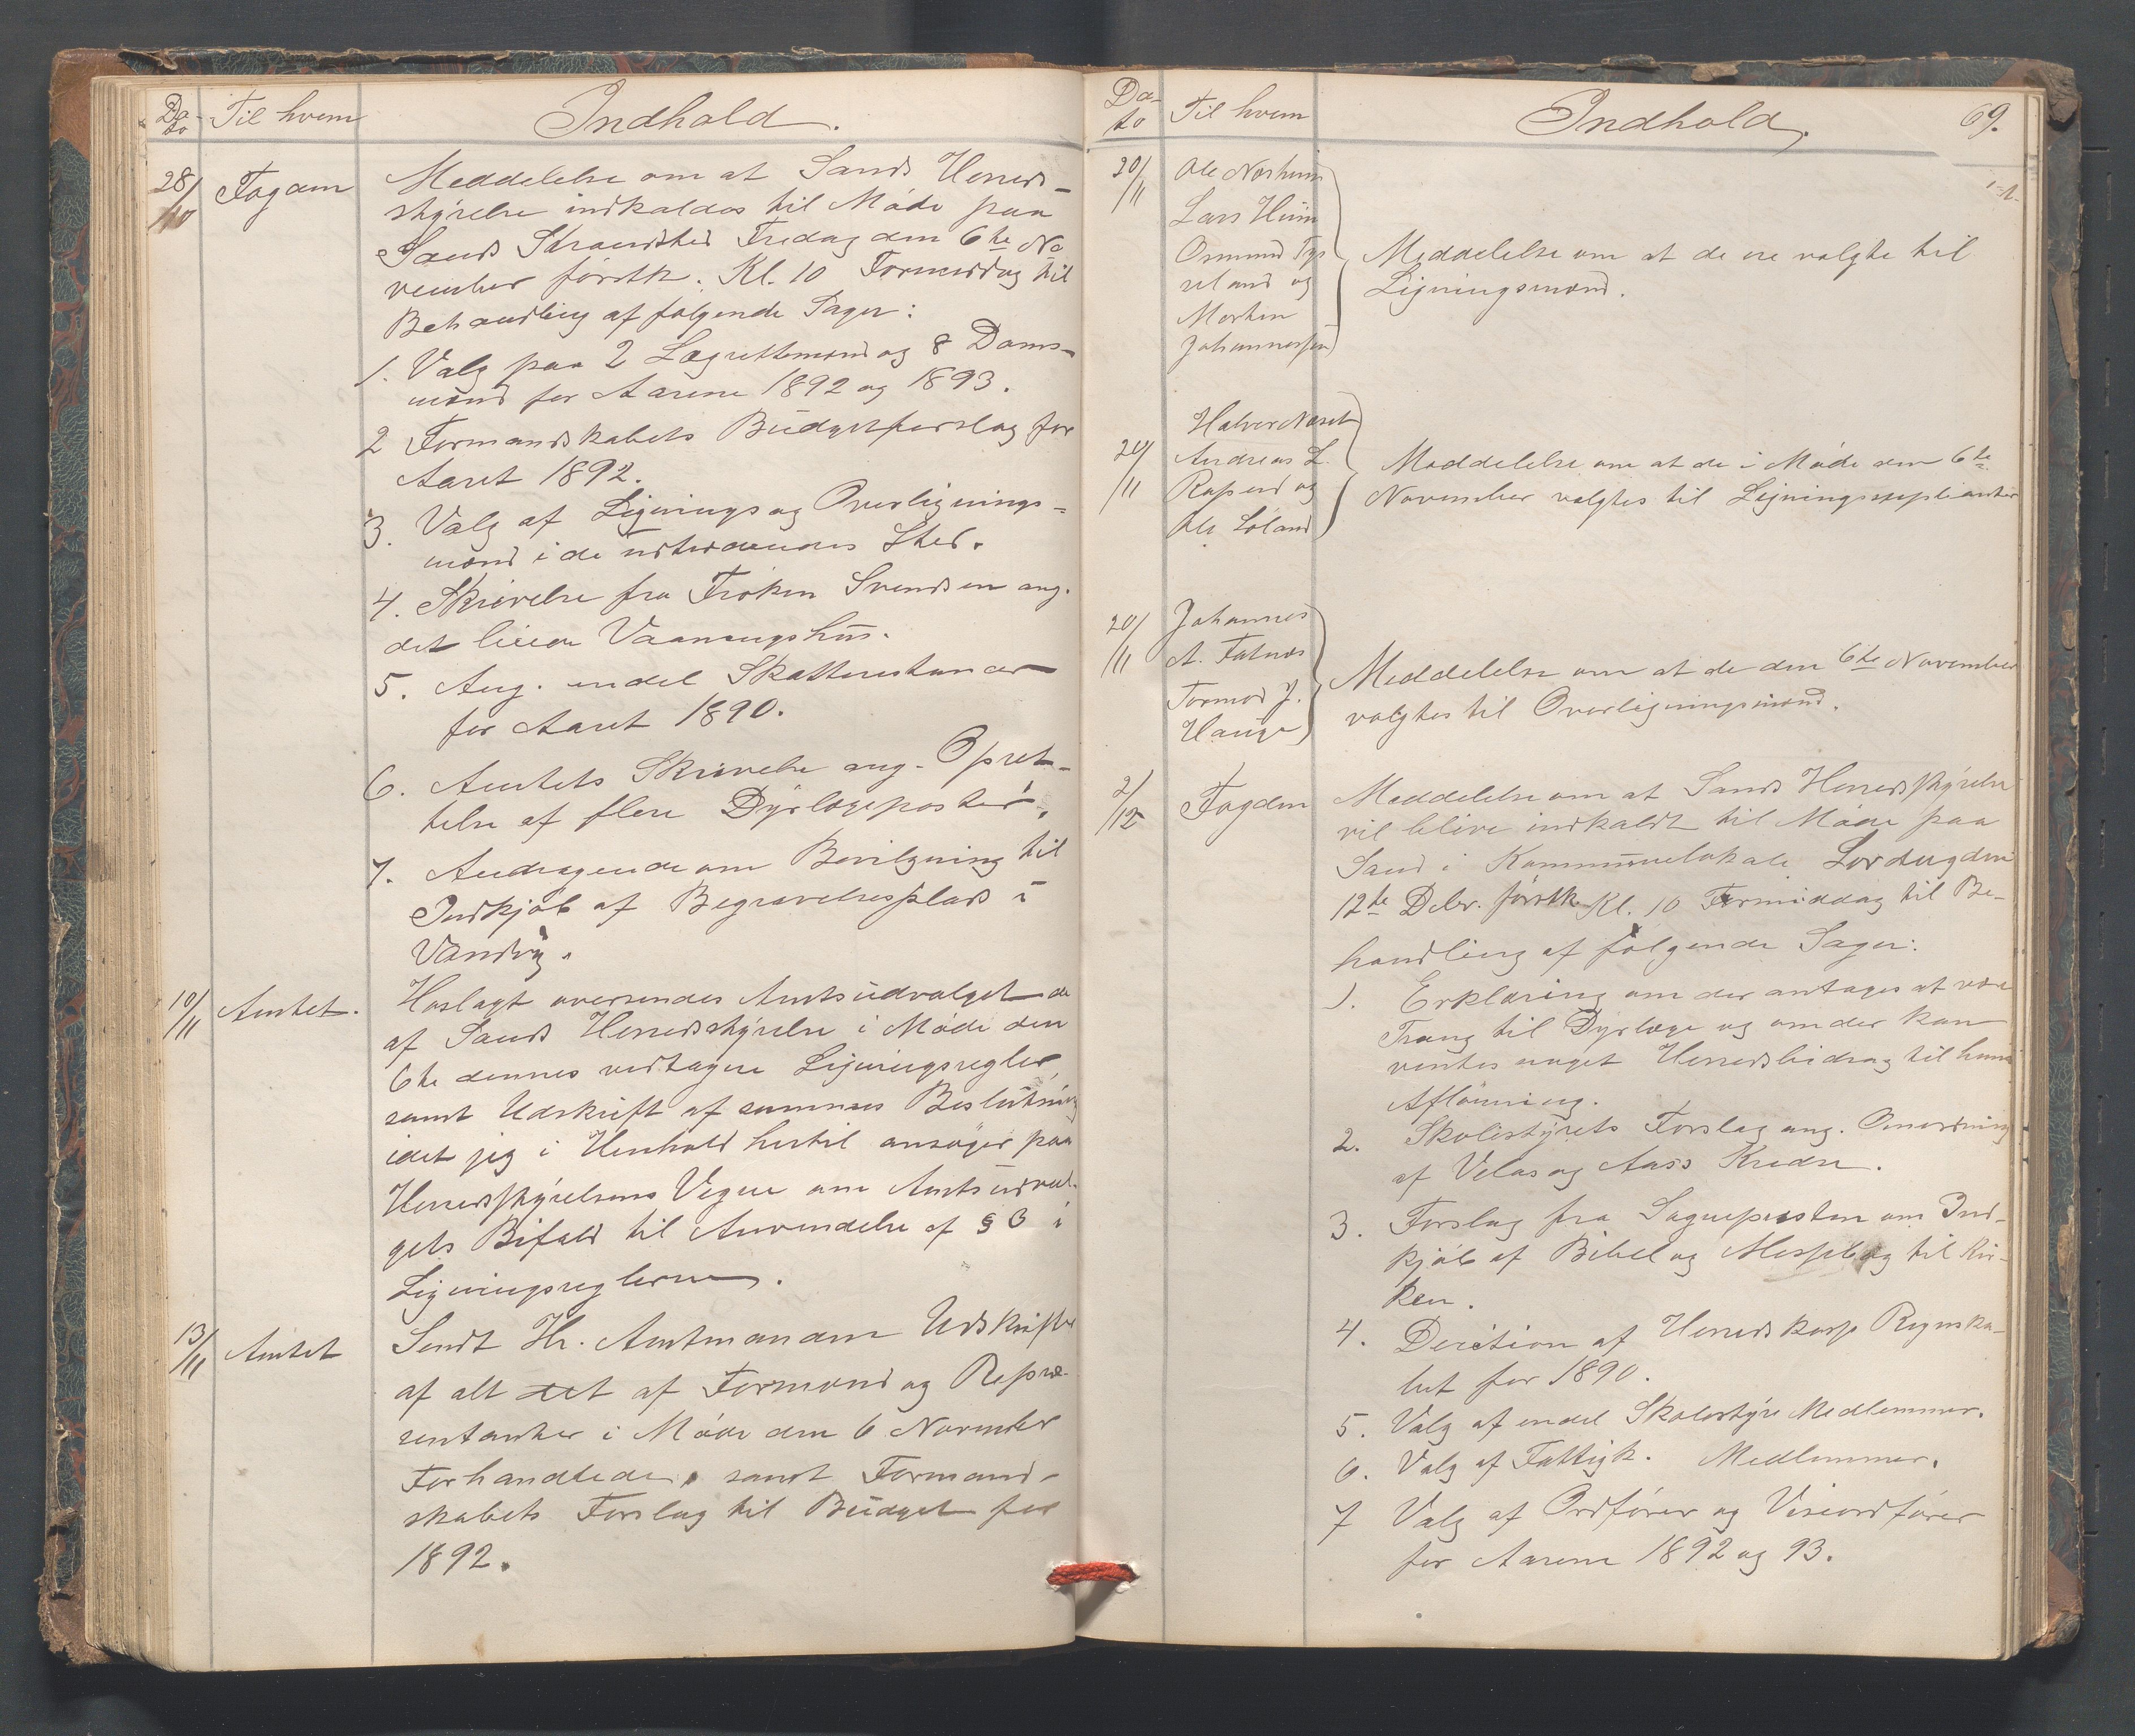 Da-
to
Til hvem
Indhold.
28/10
Fogden
Meddelelse om at Sands Herreds-
styrelse indkaldes til Møde paa
Sands Strandsted Fredag den 6te No
vember førstk. Kl. 10 Formiddag til
Behandling af følgende Sager:
1. Valg paa 2 Lagrettemænd og 8 Doms-
mænd for Aarene 1892 og 1893.
2 Formandskabets Budgetforslag for
Aaret 1892.
3. Valg af Ligningsog Overlignings-
mænd i de udtrædendes Sted.
4. Skrivelse fra Frøken Svendsen ang.
det Vaaningshus.
5. Ang. endel Skatterestancer
for Aaret 1890.
6. Amtets Skrivelse ang. Opret-
telse af flere Dyrlægeposter.
7. Andragende om Bevilgning til
Indkjøb af Begravelsesplads i
Vandvig.
10/11
Amtet.
Hoslagt oversendes Amtsudvalget de
af Sands Herredsstyrelse i Møde den
6te dennes vedtagne Ligningsregler,
samt Udskrift af sammes Beslutning
idet jeg i Henhold hertil ansøger paa
Herredsstyrelsens Vegne om Amtsudval-
gets Bifald til Anvendelse af § 3 i
Ligningsreglerne.
13/11
Amtet
Sendt Hr. Amtmanden Udskrifter
af alt det af Formænd og Repræ-
sentanter i Møde den 6 November
Forhandlede, samt Formand-
skabets Forslag til Budget for
1892.
Da-
to
Til hvem
Indhold.
69.
20/11
Ole Norheim
Lars Hiim
Osmund Tys
seland og
Morten
Johannessen
Meddelelse om at de ere valgte til
Ligningsmænd.
20/11
Halvor Næset
Andreas L.
og
Ole Løland
Meddelelse om at de i Møde den 6te
November valgtes til Ligningssuplianter
20/11
Johannes
A. Fatnes
Tormod J.
Hauge
Meddelelse om at de den 6te November
valgtes til Overligningsmænd.
2/12
Fogden
Meddelelse om at Sands Herredsstyrelse
vil blive indkaldt til Møde paa
Sand i Kommunelokale Lørdag den
12te Debr. førstk. Kl. 10 Formiddag til Be-
handling af følgende Sager:
1. Erklæring om der antages at være
Trang til Dyrlæge og om der kan
ventes noget Herredsbidrag til hans
Aflønning.
2. Skolestyrets Forslag ang. Omordning
af Velas og Aass Kredse.
3. Forslag fra Sognepresten om Ind-
kjøb af Bibel og til Kir-
ken.
4. Decition af Herredskass Regnska-
bet for 1890.
5. Valg af endel Skolestyre Medlemmer.
6. Valg af Fattigk. Medlemmer.
7 Valg af Ordfører og Viseordfører
for Aarene 1892 og 93.